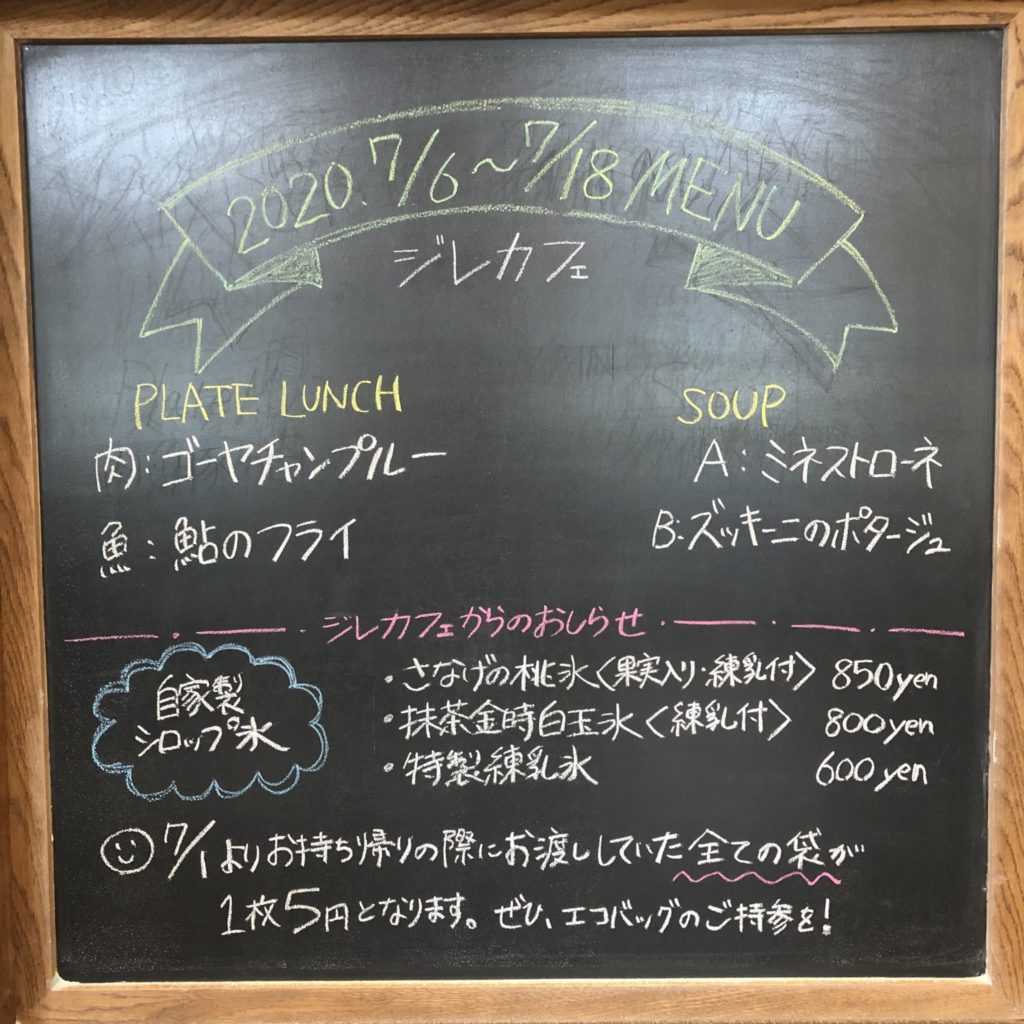 2020. 7/6～7/18 MENU
ジレカフェ
PLATE LUNCH
肉：ゴーヤチャンプルー
魚：鮎のフライ
SOUP
A：ミネストローネ
B：ズッキーニのポタージュ
ジレカフェからのおしらせ
自家製
シロップ氷
・さなげの桃氷〈果実入り・練乳付〉 850yen
・抹茶金時白玉氷〈練乳付〉 800yen
・特製練乳氷 600yen
7/1よりお持ち帰りの際にお渡ししていた全ての袋が
1枚5円となります。ぜひ、エコバッグのご持参を！